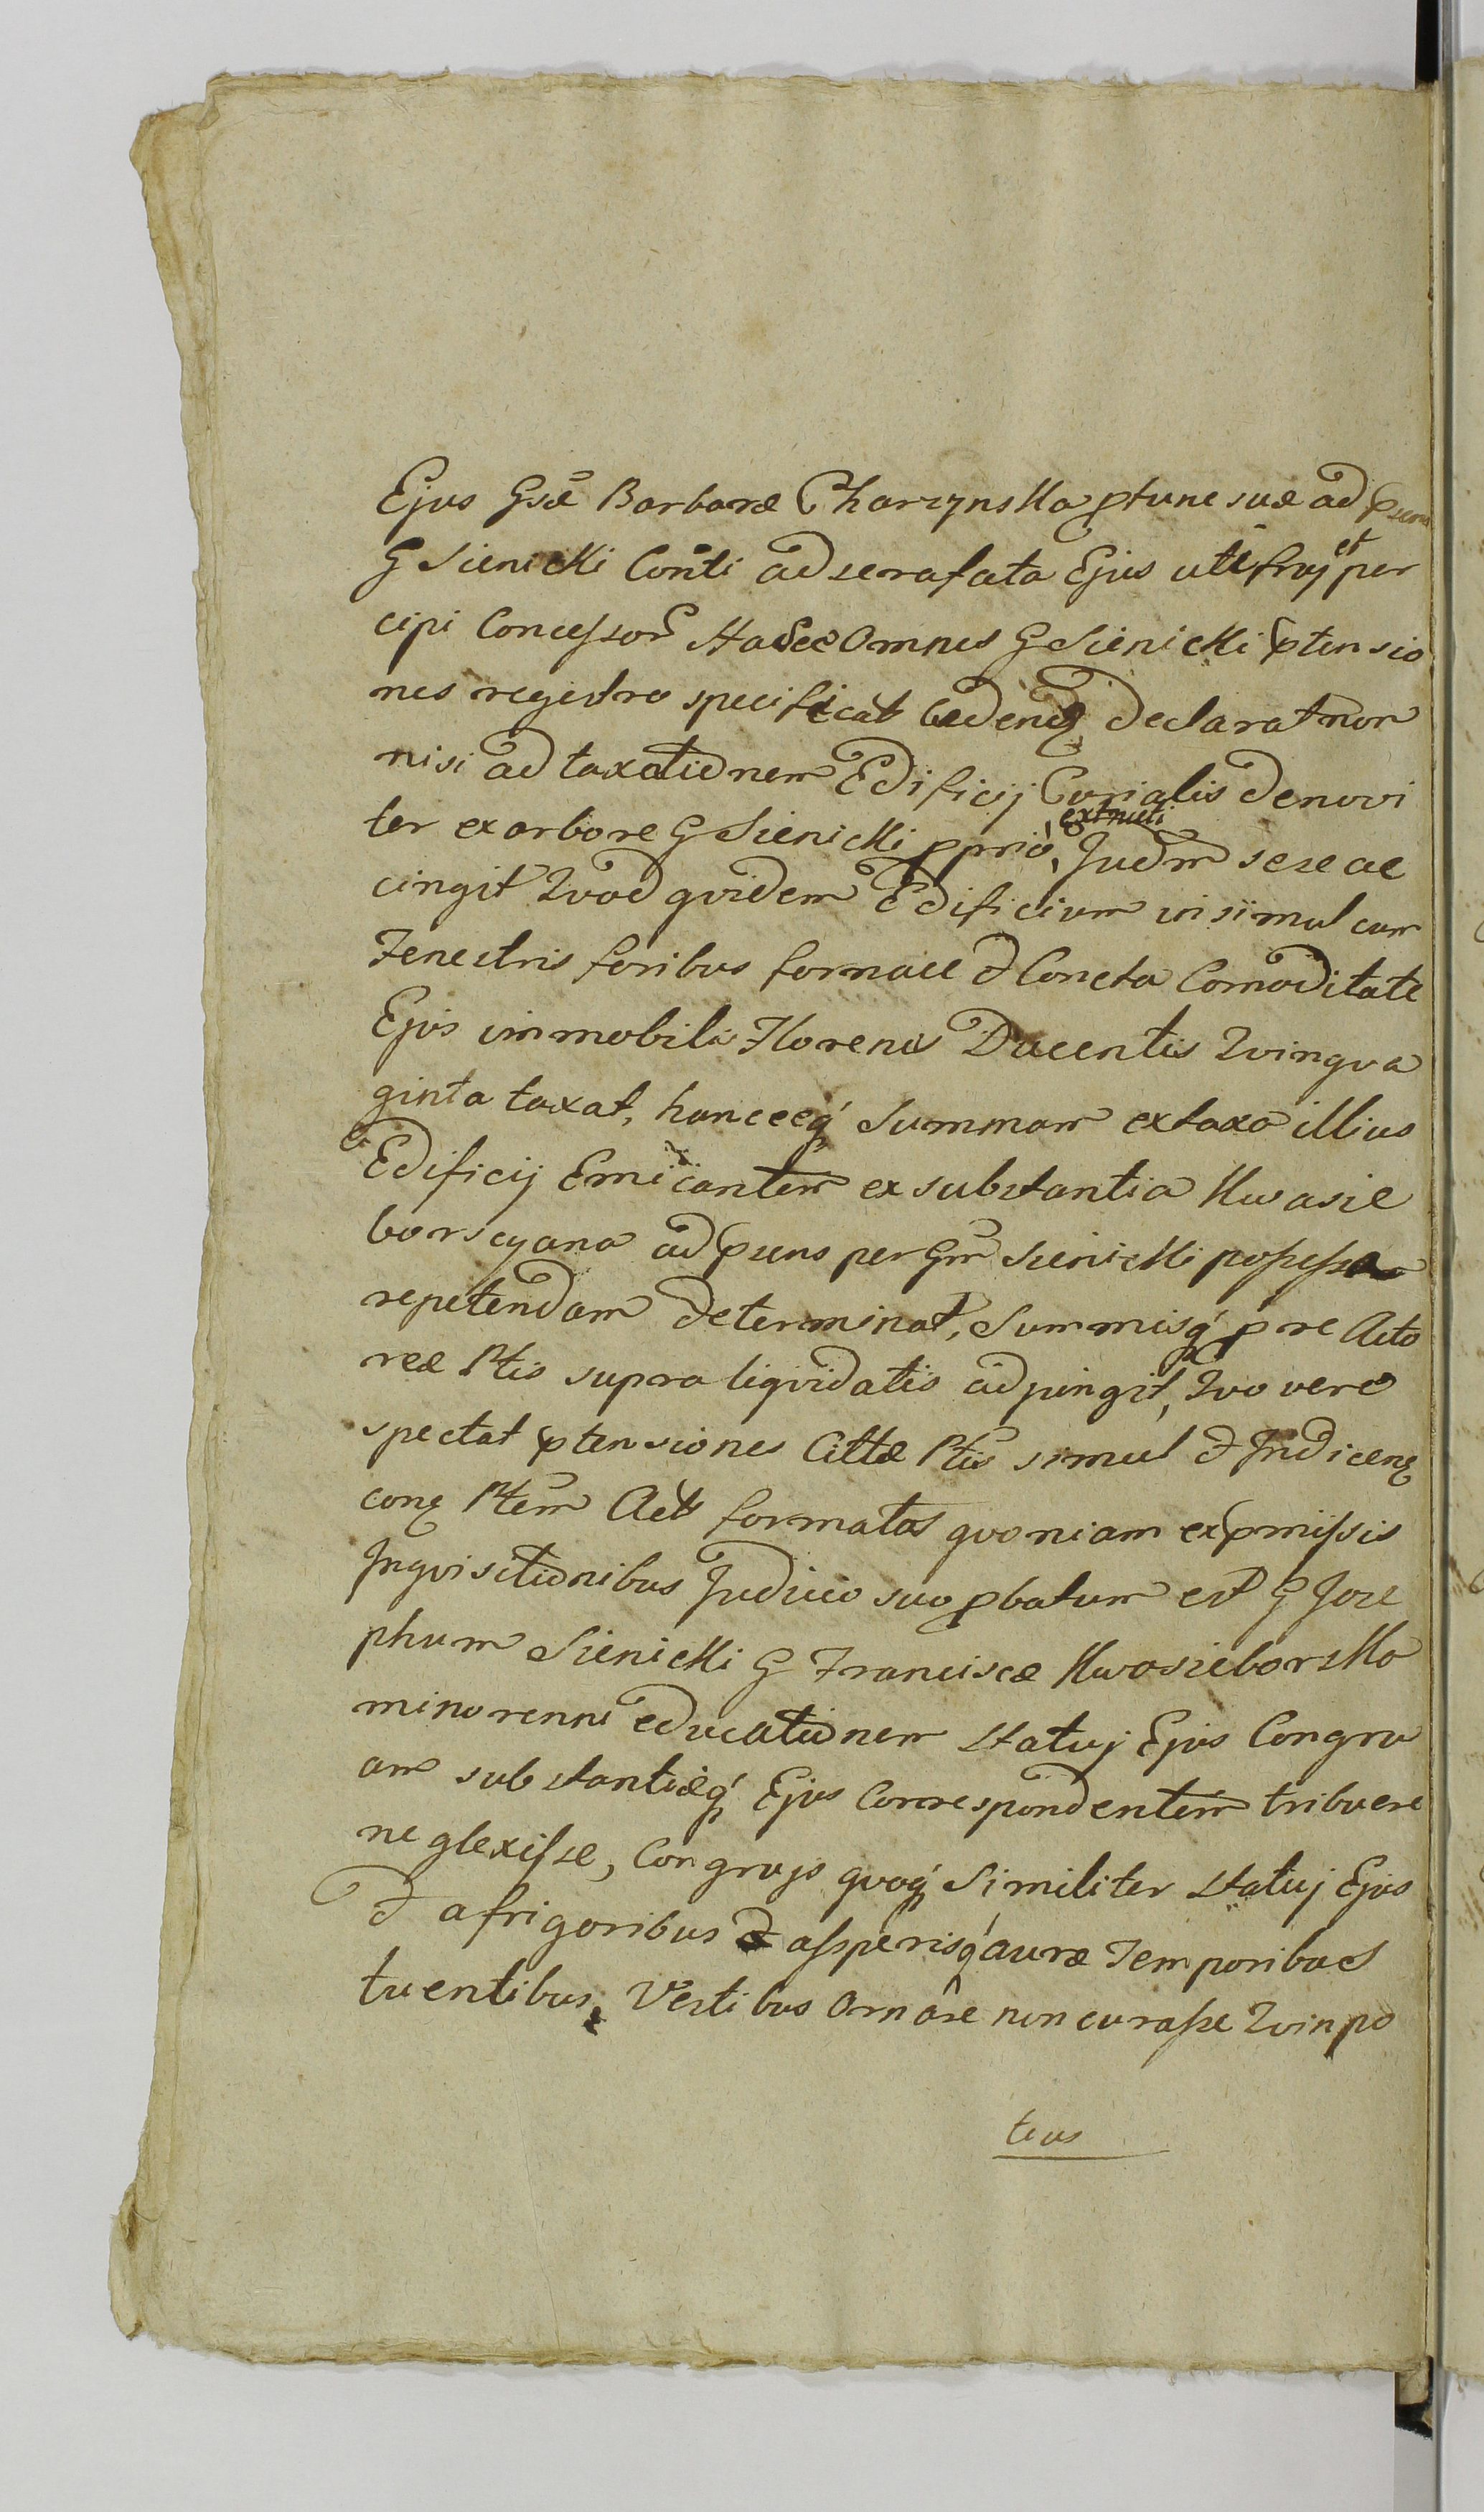 Ejus Gsæ Barbaræ Charzynska ptunc suæ ad psens
G Sienicki Conti ad serafata Ejus uti fruj et per
cipi Concessor Hasce Omnes G Sienicki ptensio
nes regestro specificat Cedenq declarat non
nisi ad taxationem Edificij Curialis denovi
ter ex arbore G Sienicki pprio extructi Judm sese ac
cingit Quod quidem Edificium insimul cum
Fenestris foribus fornace & Concta Comoditate
Ejus immobili Florenis Ducentis Quinqua
ginta taxat, hancceq́ Summam ex taxa illius
Edificij Emicantem ex substantia Kwasie
borscyana ad psens per Gm Sienicki possessa
repetendam determinat, Summisq́ pre Acto
reæ Ptis supra liquidatis adjungit, Quo vero
spectat ptensiones Cittæ Ptis simul & Judicenq
conq Ptem Act formatas quoniam ex pmissis
Inquisitionibus Judicio suo pbatum est G Jose
phum Sienicki G Franciscæ Kwasieborska
minorenni educationem statuj Ejus Congru
am substantiæq́ Ejus Correspondentem tribuere
neglexisse, Congrujs quoq́ Similiter statuj Ejus
& a frigoribus & assperisq́ auræ Temporibus
tuentibus, Vestibus Ornare non curasse Quin po
tius